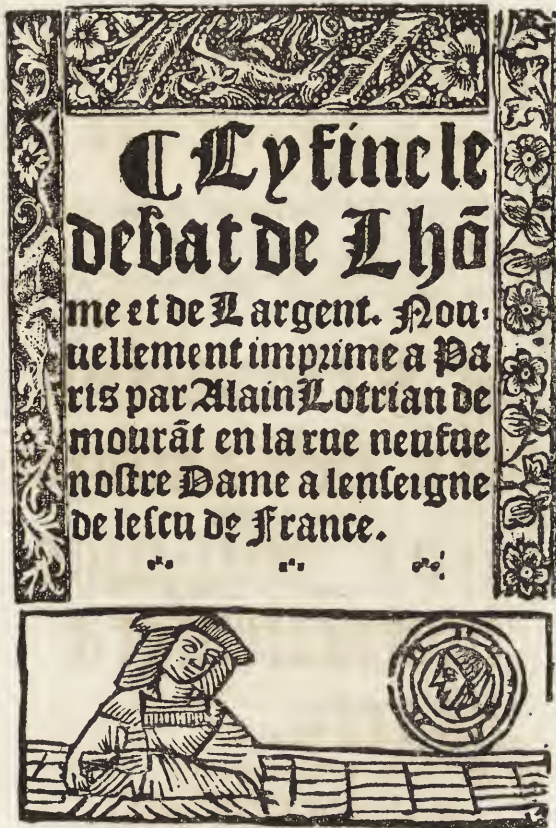 ⸿ Cy fine le
debat de Lhõ
me et de Largent. Nou⸗
uellement imprime a Pa
ris par Alain Lotrian de
mourãt en la rue neufue
nostre Dame a lenseigne
de lescu de France.